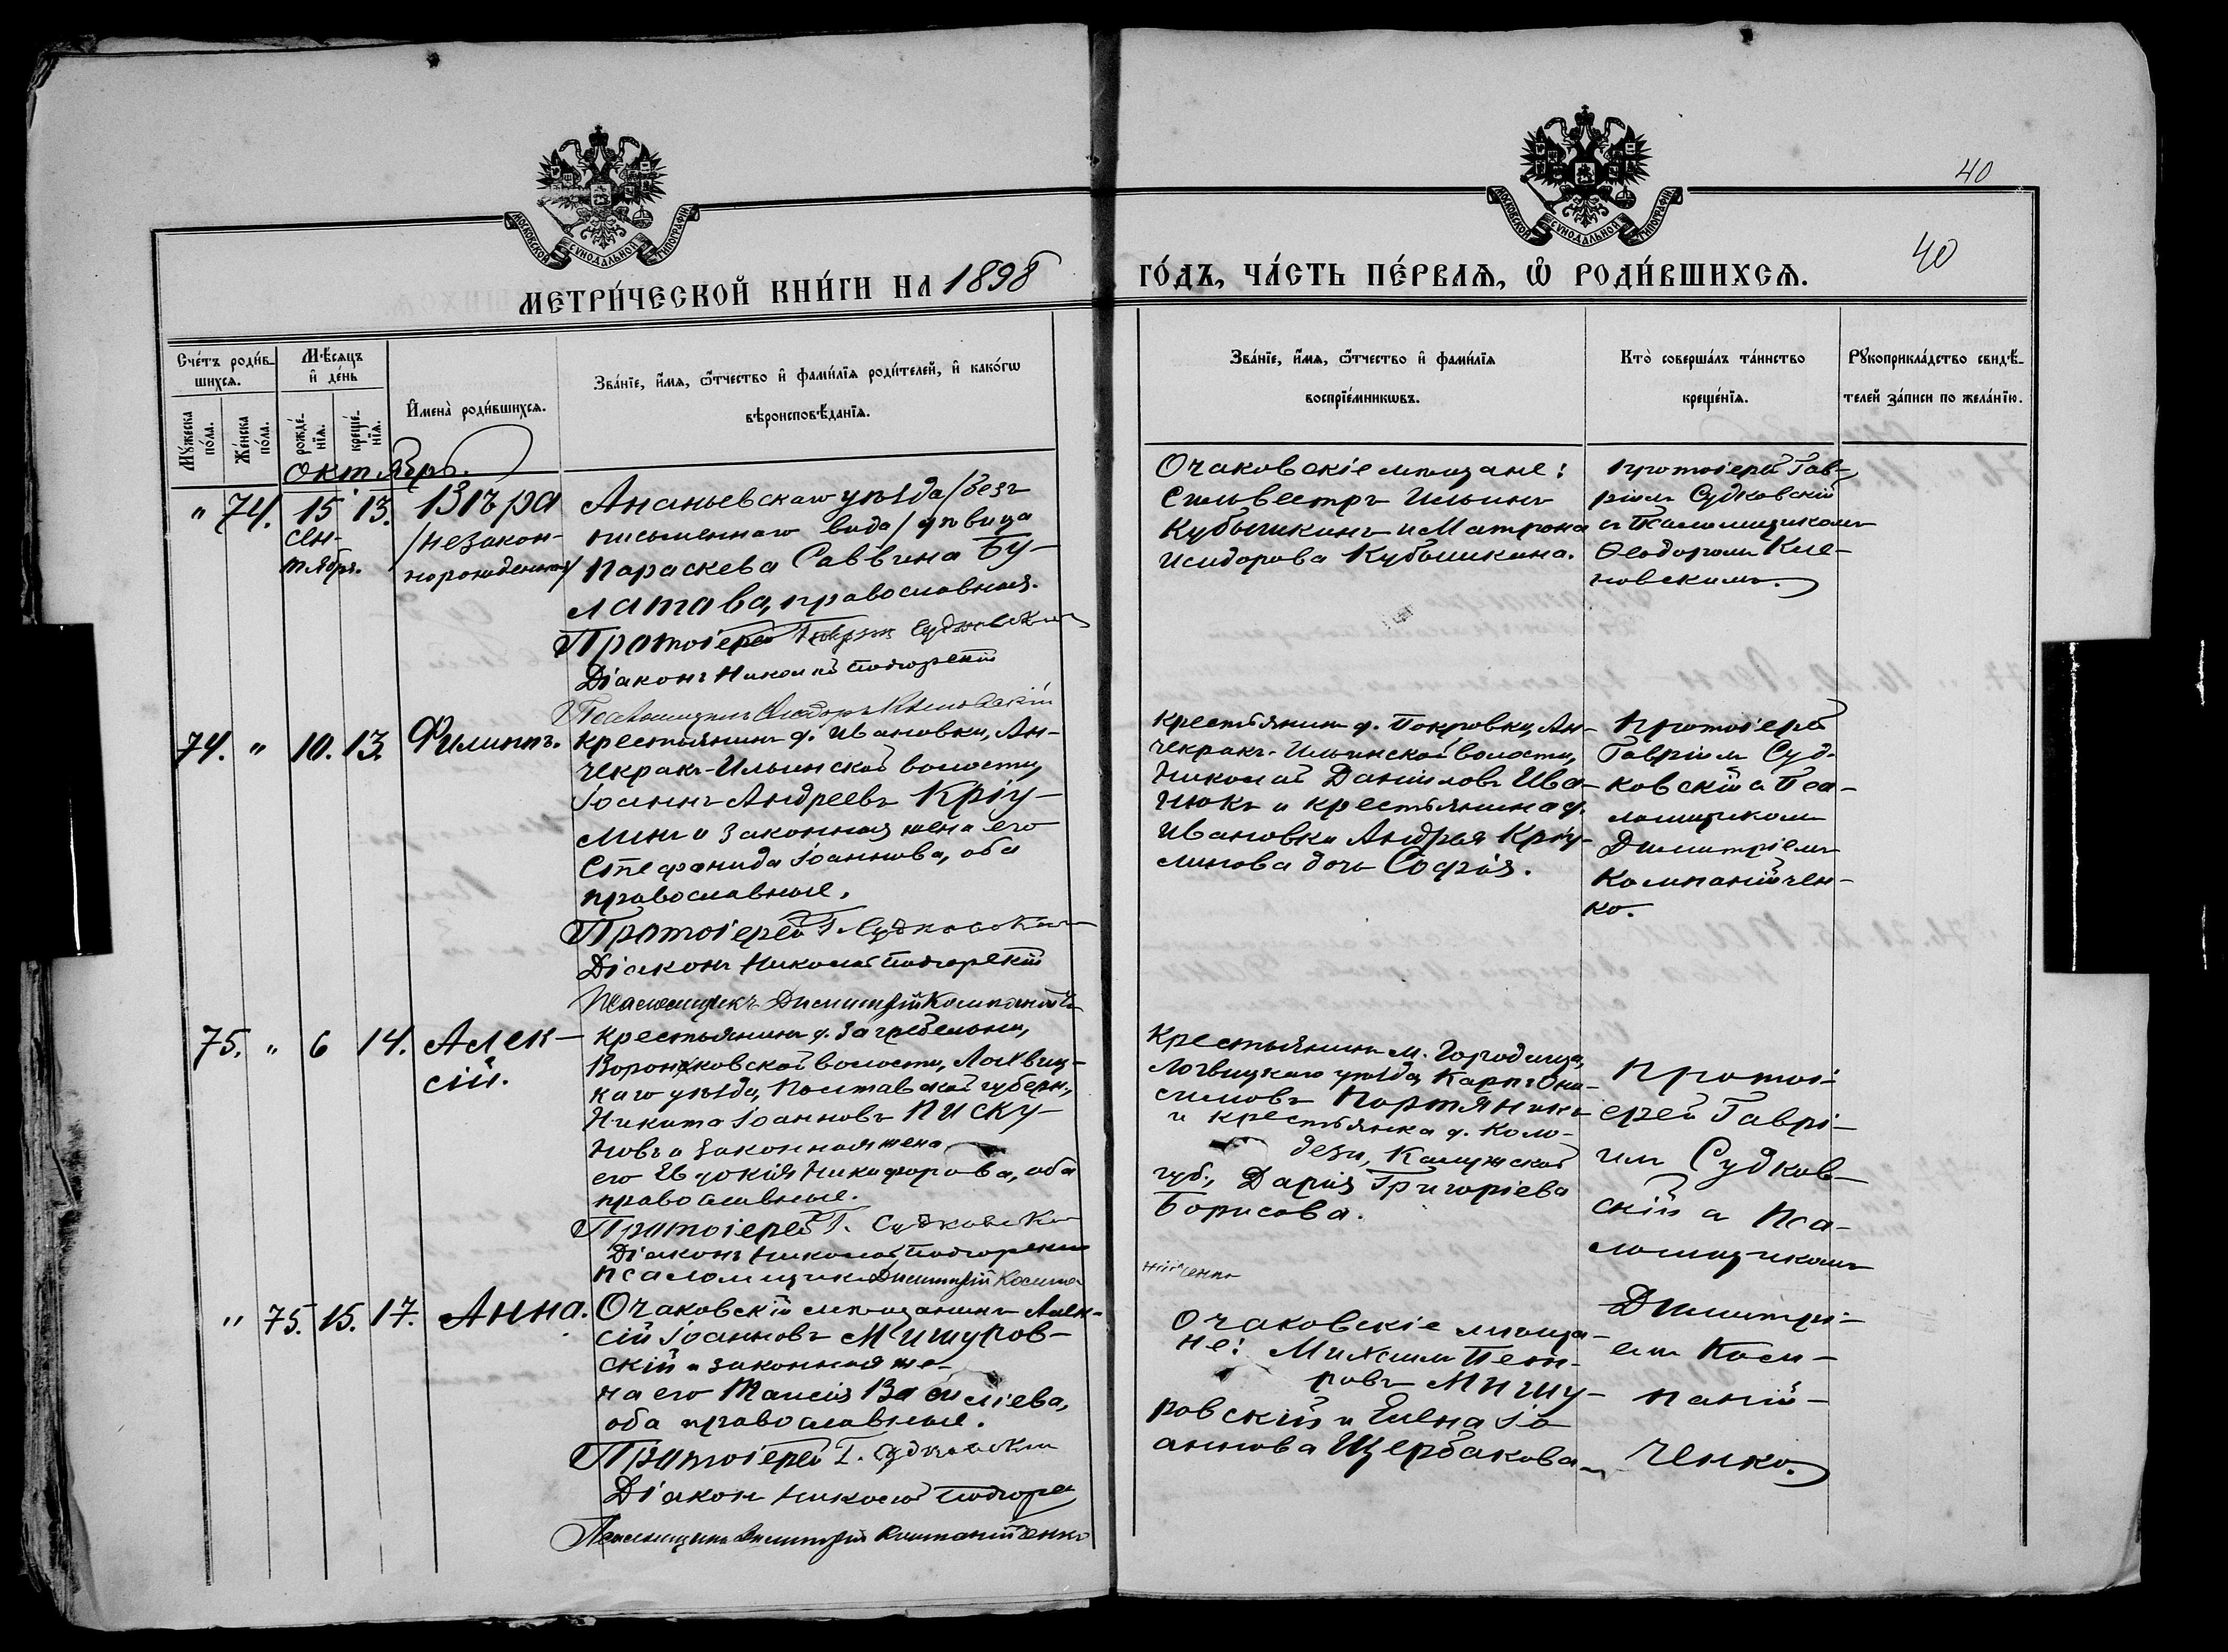 40
МОСКОВСКОЙ СѴНОДАЛЬНОЙ ТИПОГРАФІИ
МОСКОВСКОЙ СѴНОДАЛЬНОЙ ТИПОГРАФІИ
40
МЕТРИ́ЧЕСКОЙ КНИ́ГИ НА 1898
ГО́ДЪ, ЧА́СТЬ ПЕ́РВАѦ, Ѿ РОДИ́ВШИХСѦ.
Сче́тъ роди́в-
шихсѧ.
Мꙋ́жеска по́ла.
Же́нска по́ла.
Мѣ́сѧцъ
и҆ де́нь
рожде́-
нїѧ.
креще́-
нїѧ.
И҆мена̀ роди́вшихсѧ.
Зва́нїе, и҆́мѧ, ѻ҆́тчество и҆ фами́лїѧ роди́телей, и҆ како́гѡ
вѣроисповѣ́данїѧ.
Зва́нїе, и҆́мѧ, ѻ҆́тчество и҆ фами́лїѧ
воспрїе́мникѡвъ.
Кто̀ соверша́лъ та́инство
креще́нїѧ.
Рꙋкоприкла́дство свидѣ́-
телей за́писи по жела́нїю.
октябрь.
" 74. 15 13. Вѣра
сен-
тября.
/незакон-
норожденная/
Ананьевскаго уѣзда /безъ
письменнаго вида/ дѣвица
Параскева Саввина Бу-
латова, православная.
Протоіерей Гавріилъ Судковскій
Діаконъ Николай Подгорскій
Псаломщикъ Ѳеодоръ
Очаковскіе мѣщане:
Сильвестръ Ильинъ
Кубышкинъ и Матрона
Исидорова Кубышкина.
Протоіерей Гав-
ріилъ Судковскій
съ Псаломщикомъ
Ѳеодоромъ Кле-
новскимъ.
74. " 10. 13. Филиппъ.
Крестьянинъ д. Ивановки, Ан-
чекракъ-Ильинской волости,
Іоаннъ Андреевъ Кріу-
линъ и законная жена его
Стефанида Іоаннова, оба
православные.
Протоіерей Г. Судковскій
Діаконъ Николай Подгорскій
Псаломщикъ Димитрій Компаній
Крестьянинъ д. Покровки, Ан-
чекракъ-Ильинской волости,
Николай Даніиловъ Ива-
нюкъ и крестьянина д.
Ивановки Андрея Кріу-
линова дочь Софія.
Протоіерей
Гавріилъ Суд-
ковскій съ Пса-
ломщикомъ
Димитріемъ
Компанійчен-
ко.
75. " 6 14. Алек-
сій.
Крестьянинъ д. Загребельни,
Воронковской волости, Лохвиц-
каго уѣзда, Полтавской губерн.,
Никита Іоанновъ Писку-
новъ и законная жена
его Евдокія Никифорова, оба
православные.
Протоіерей Г. Судковскій
Діаконъ Николай Подгорскій
Псаломщикъ Димитрій Компа
Крестьянинъ м. Городища,
Лохвицкаго уѣзда, Карпъ Они-
симовъ Портяникъ
и крестьянка д. Коло-
дези, Калужской
губ., Дарія Григоріева
Борисова.
нійченко
Протоі-
ерей Гаврі-
илъ Судков-
скій съ Пса-
ломщикомъ
Димитрі-
емъ Ком-
паній-
ченко.
" 75. 15. 17. Анна.
Очаковскій мѣщанинъ Алек-
сій Іоанновъ Мишуров-
скій и законная же-
на его Таисія Василіева,
оба православные.
Протоіерей Г. Судковскій
Діаконъ Николай Подгорс
Псаломщикъ Димитрій Компанійченко
Очаковскіе мѣща-
не: Михаилъ
ровъ Мишу-
ровскій и Елена Іо-
аннова Щербакова.